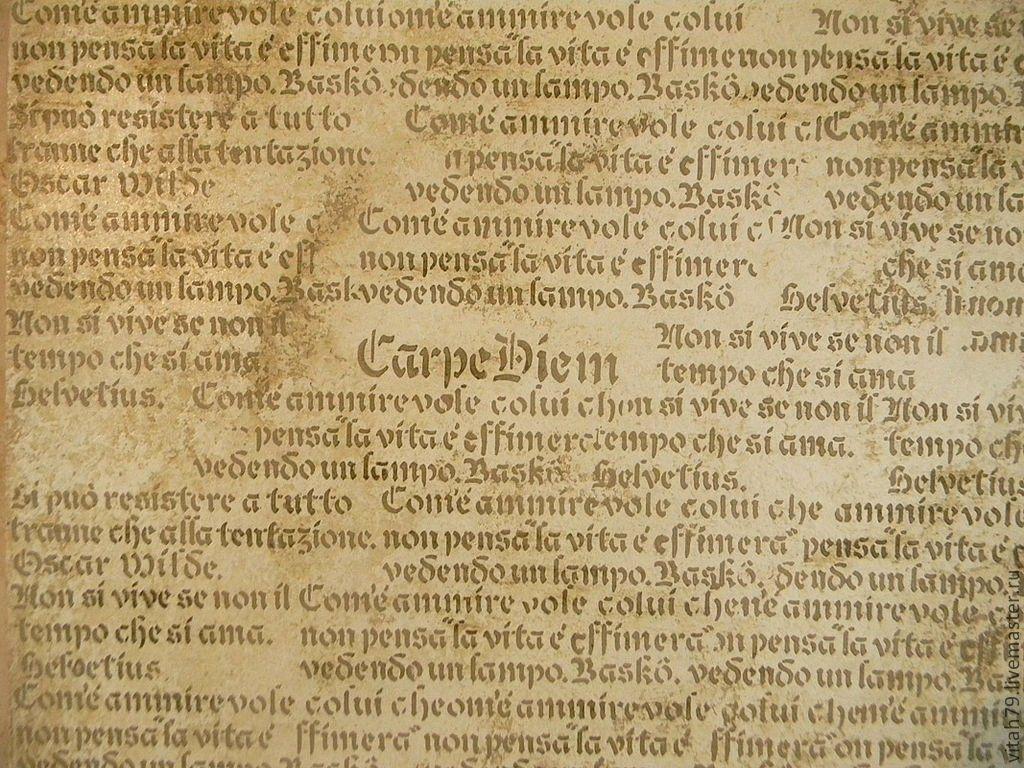 Com'é ammirevole colui om'e ammirevole colui Non si vive se
non pensa "la vita é effime on pensa "la vita é effime non pensa "la vita é e
vedendo un lampo. Baskō. dendo un lampo. Baskō. vedendo un lampo.
Si può resistere a tutto Com'é ammirevole colui c Com'é ammir
tranne che alla tentazione. n pensa "la vita é effimer non pensa "la v
Oscar Wilde vedendo un lampo. Baskō vedendo un la
Com'é ammirevole c Com'é ammirevole colui c Non si vive se no
non pensa "la vita é eff non pensa "la vita é effimer che si ama
vedendo un lampo. Bask vedendo un lampo. Baskō Helvetius. n non
Non si vive se non il Non si vive se non il .ama
tempo che si ama. Carpe Diem tempo che si ama
Helvetius. Com'é ammirevole colui ch on si vive se non il Non si viv
pensa "la vita é effimera tempo che si ama. tempo ch
vedendo un lampo. Baskō Helvetius. Helvetius
Si può resistere a tutto Com'é ammirevole colui che ammirevole
tranne che alla tentazione. non pensa "la vita é effimera" pensa "la vita é e
Oscar Wilde. vedendo un lampo. Baskō. dendo un lampo.
Non si vive se non il Com'é ammirevole colui che n'é ammirevole c
tempo che si ama. non pensa "la vita é effimera" on pensa "la vita é eff
Helvetius vedendo un lampo. Baskō. vedendo un lampo. Ba
Com'é ammirevole colui che om'é ammirevole colui che m'é ammi
non pensa "la vita é ffimera" non pensa "la vita é ffimera" on pensa "la v
vedendo un lampo. Baskō. vedendo un lampo. Baskō. vedendo un lamp
vitah79.livemaster.ru